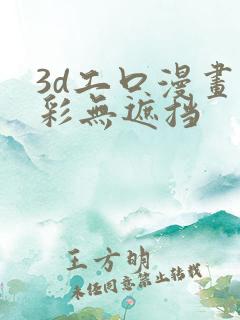 3d工口漫畫
彩無遮挡
王方明
未经同意禁止转载